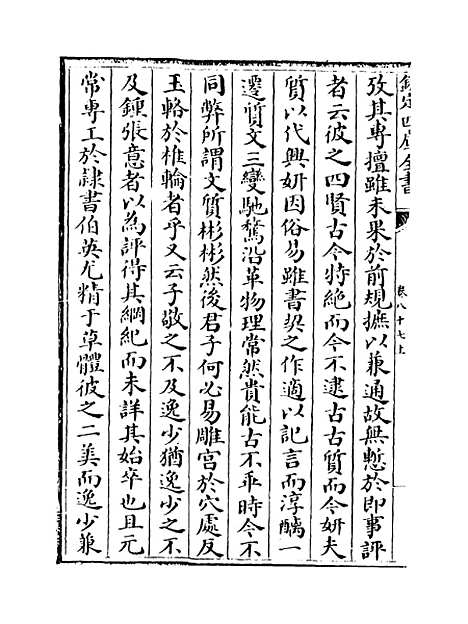 欽定四庫全書
卷八十七上
攷其專擅雖未果於前規摭以兼通故無慙於即事評
者云彼之四賢古今特絶而今不逮古古質而今妍夫
質以代興妍因俗易雖書契之作適以記言而淳醨一
遷質文三變馳騖沿革物理常然貴能古不乖時今不
同弊所謂文質彬彬然後君子何必易雕宫於穴處反
玉輅於椎輪者乎又云子敬之不及逸少猶逸少之不
及鍾張意者以為評得其綱紀而未詳其始卒也且元
常專工於𨽻書伯英尤精于草體彼之二美而逸少兼